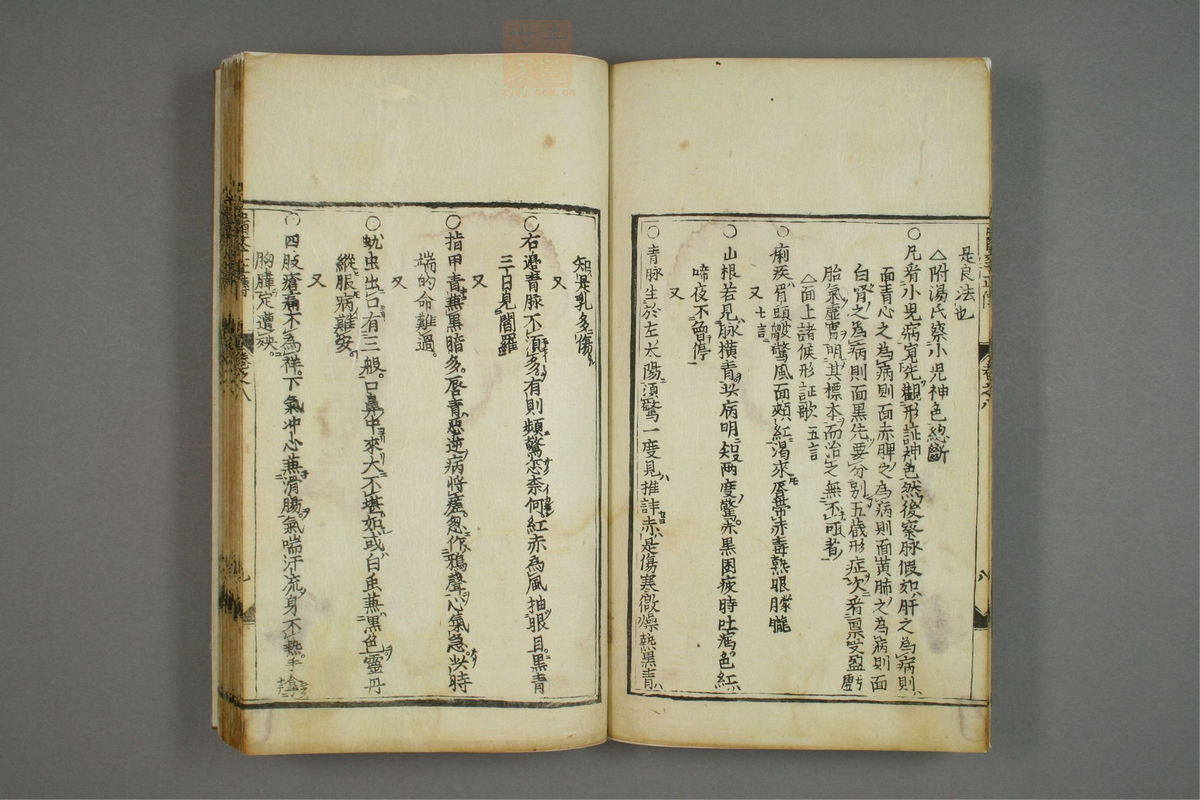 是良法也
△附湯氏察小児神色總斷
○凡看小児病寛先觀形証神色然後察脉假如肝之為病則
面青心之為病則面赤脾之為病則面黄肺之為病則面
白腎之為病則面黒先要分别五歳形症次看禀受盈虚
胎氣虚實明其標本而治之無不可者
△面上諸候形証歌 五言
○痢疾眉頭皺驚風面頬紅渇來唇帯赤毒熱眼朦朧
又 七言
○山根若見脉横青此病明知兩度驚赤黒困疲時吐瀉色紅
啼夜不曾停
又
○青脉生於左太陽須驚一度見推詳赤是傷寒微燥熱黒青
知是乳多傷
又
○右邉青脉不須多有則頻驚怎奈何紅赤為風抽眼目黒青
三日見閻羅
又
○指甲青兼黒暗多唇青惡逆病将瘥忽作鴉聲心氣急此時
端的命難過
又
○蚘虫出口有三般口鼻中來大不堪如或白虫兼黒色靈丹
縱服病難安
又
○四肢瘡痛不為祥下氣冲心兼滑腸氣喘汗流身不熱手
胸膈定遭殃